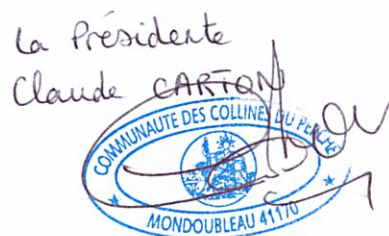 La Présidente
Claude CARTON
COMMUNAUTE DES COLLINES DU PERCHE
MONDOUBLEAU 41170